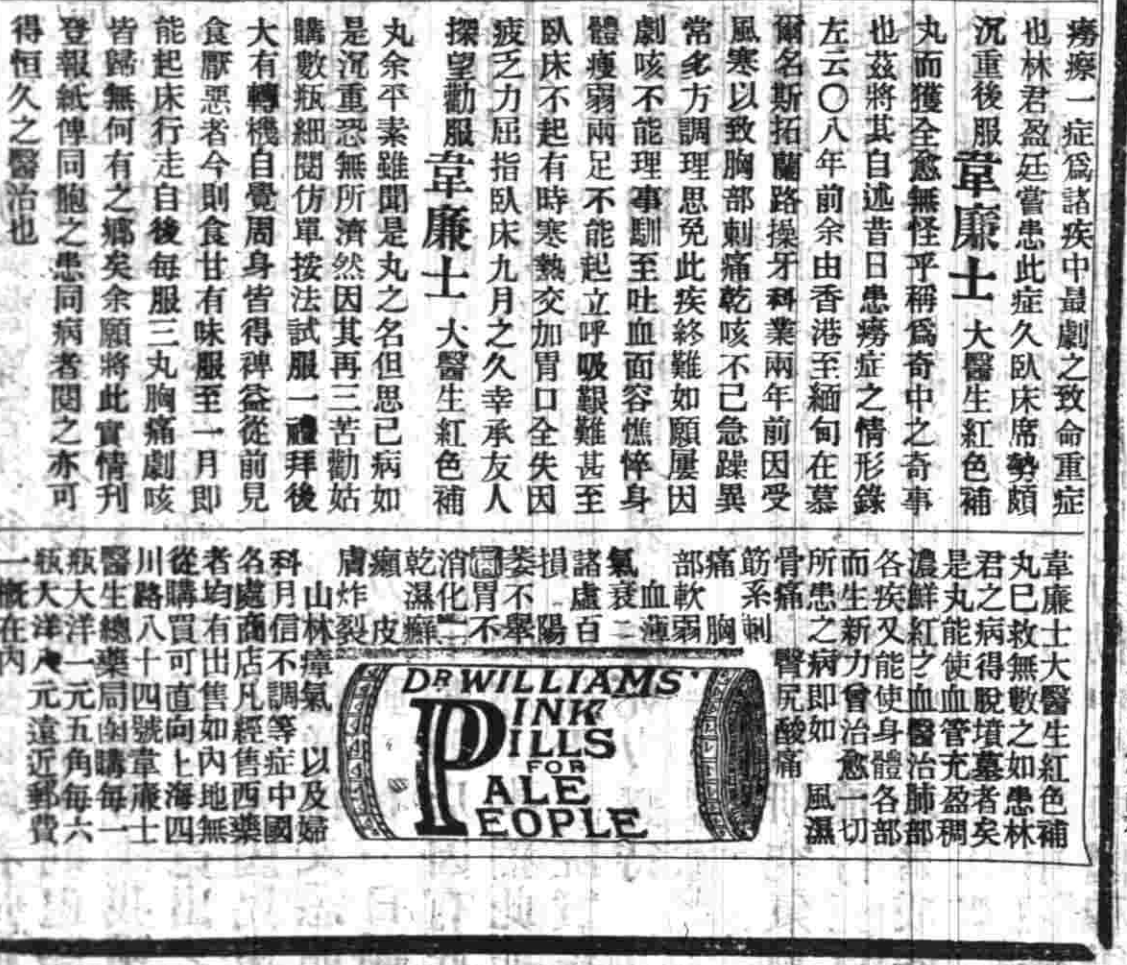 癆瘵一症爲諸疾中最劇之致命重症
也林君盈廷嘗患此症久臥床席勢頗
沉重後服韋廉士大醫生紅色補
丸而獲全愈無怪乎稱爲奇中之奇事
也茲將其自述昔日患癆症之情形錄
左云〇八年前余由香港至緬甸在慕
爾名斯拓蘭路操牙科業兩年前因受
風寒以致胸部刺痛乾咳不已急躁異
常多方調理思免此疾終難如願屢因
劇咳不能理事馴至吐血面容憔悴身
體瘦弱兩足不能起立呼吸艱難甚至
臥床不起有時寒熱交加胃口全失因
疲乏力屈指臥床九月之久幸承友人
探望勸服韋廉士大醫生紅色補
丸余平素雖聞是丸之名但思已病如
是沉重恐無所濟然因其再三苦勸姑
購數瓶細閱仿單按法試服一禮拜後
大有轉機自覺周身皆得裨益從前見
食厭惡者今則食甘有味服至一月即
能起床行走自後每服三丸胸痛劇咳
皆歸無何有之鄉矣余願將此實情刊
登報紙傳同胞之患同病者閱之亦可
得恒久之醫治也
韋廉士大醫生紅色補
丸已救無數之如患林
君之病得脫墳墓者矣
是丸能使血管充盈稠
濃鮮紅之血醫治肺部
各疾又能使身體各部
而生新力曾治愈一切
所患之病即如 風濕
骨痛 臀尻酸痛
筋系刺
痛 胸
部軟弱
血薄
氣衰 二
諸虛百
損 陽
萎不舉
胃不
消化 二
乾濕癬
癩皮
膚炸裂
山林瘴氣 以及婦
科月信不調等症中國
名處商店凡經售西藥
者均有出售如內地無
從購買可直向上海四
川路八十四號韋廉士
醫生總藥局函購每一
瓶大洋一元五角每六
瓶大洋八元遠近郵費
一概在內
DR WILLIAMS'
PINK
PILLS
FOR
PALE
PEOPLE